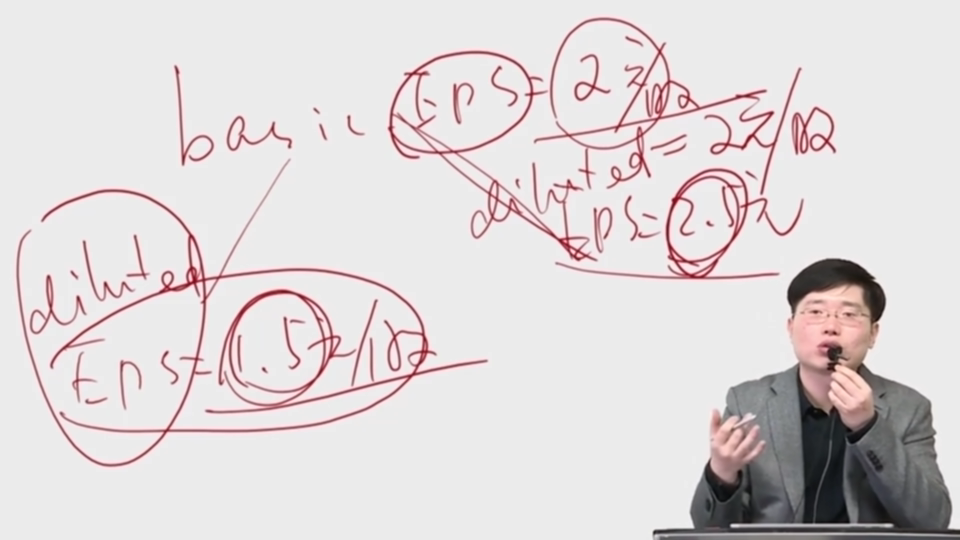 basic EPS = 2元/股
diluted = 2元/股
EPS = 2.5元
diluted
EPS = 1.5元/股